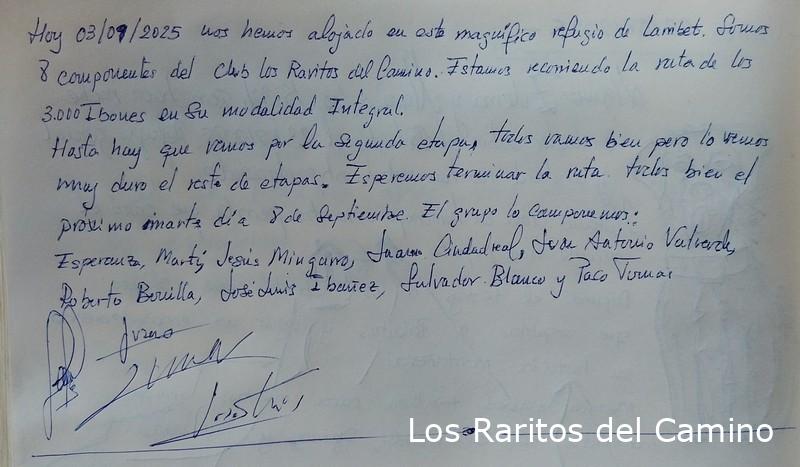 Hoy 03/09/2025 nos hemos alojado en este magnífico refugio de Larribet. Somos
8 componentes del Club los Raritos del Camino. Estamos recorriendo la ruta de los
3.000 Ibones en su modalidad Integral.
Hasta hoy que vamos por la segunda etapa, todos vamos bien pero lo vemos
muy duro el resto de etapas. Esperemos terminar la ruta todos bien el
próximo marte día 8 de Septiembre. El grupo lo componemos:
Esperanza, Martí, Jesús Mingarro, Juanra Ciudadreal, Juan Antonio Valverde,
Roberto Bonilla, José Luis Ibañez, Salvador Blanco y Paco Tomas
Los Raritos del Camino